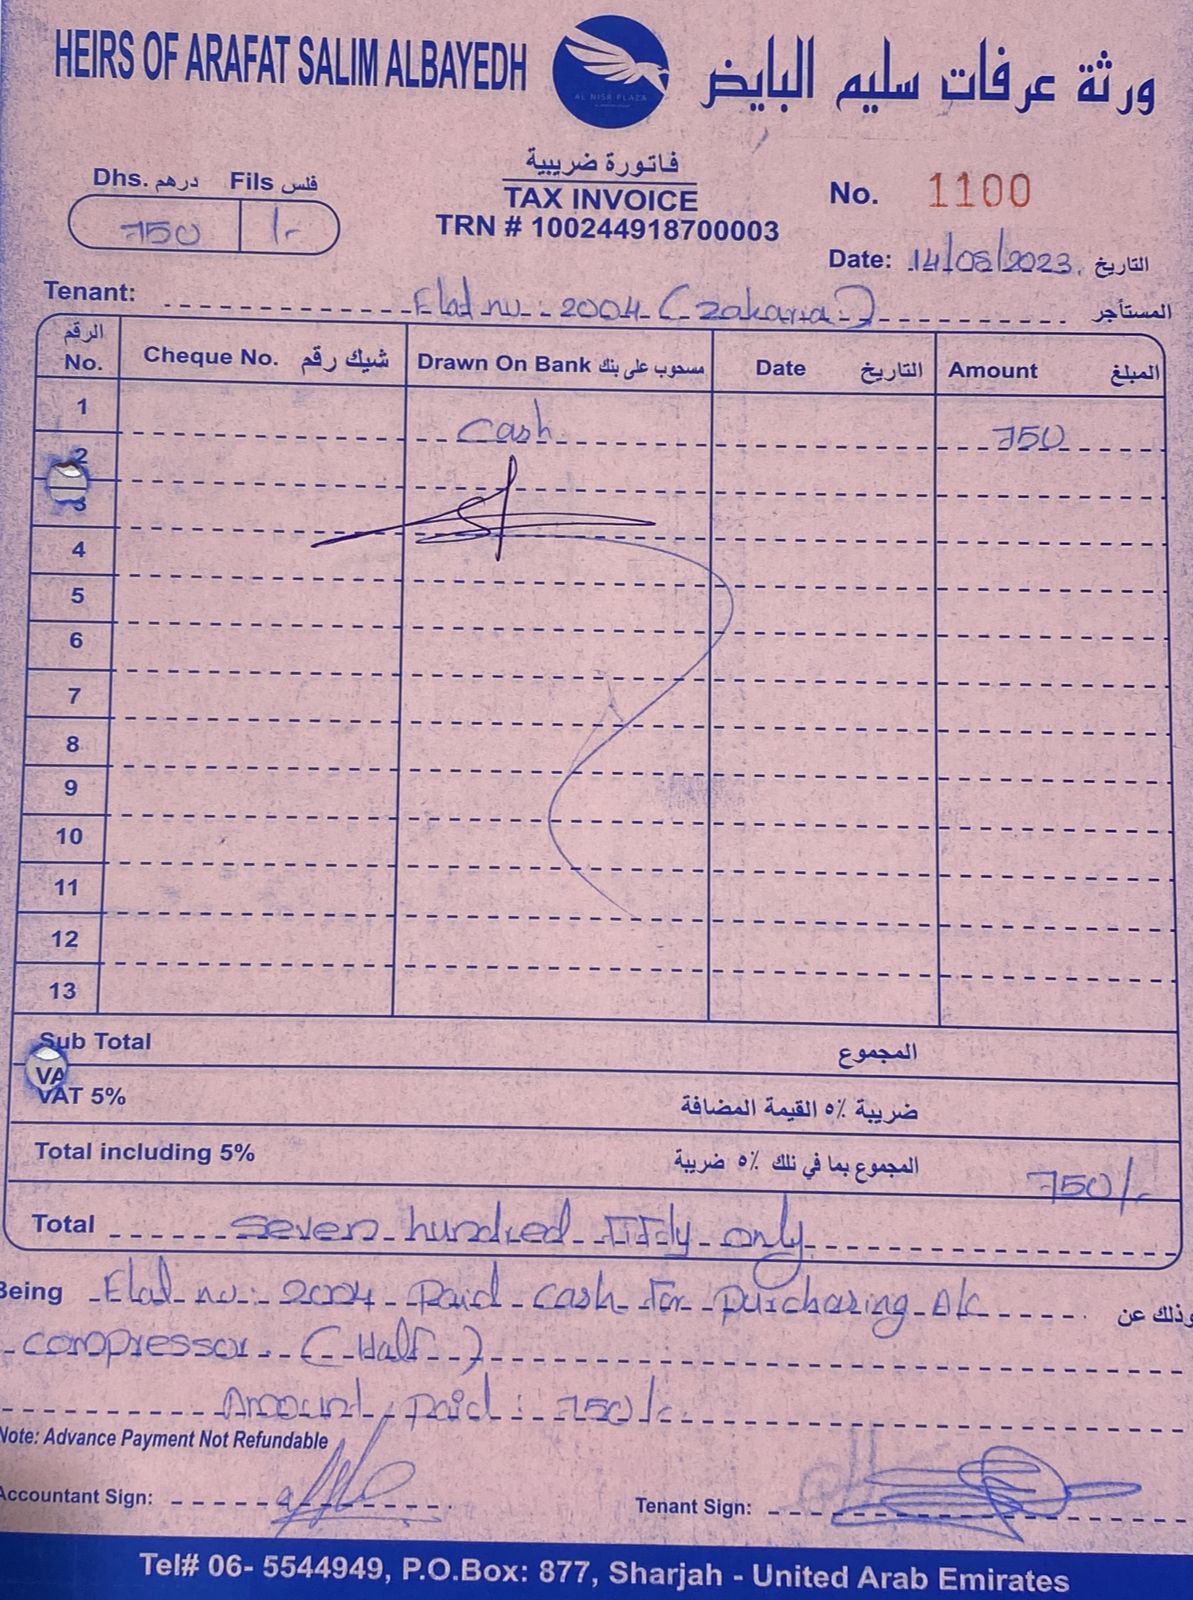 HEIRS OF ARAFAT SALIM ALBAYEDH
AL NISR PLAZA
ورثة عرفات سليم البايض
فاتورة ضريبية
TAX INVOICE
TRN # 100244918700003
Dhs. درهم Fils فلس
750 /-
No. 1100
Date: 14/08/2023 التاريخ
Tenant: Flat no: 2004 (Zakaria) المستأجر
الرقم No. Cheque No. شيك رقم Drawn On Bank مسحوب على بنك Date التاريخ Amount المبلغ
1 Cash 750
2
3
4
5
6
7
8
9
10
11
12
13
Sub Total المجموع
VA
VAT 5% ضريبة ٥٪ القيمة المضافة
Total including 5% المجموع بما في ذلك ٥٪ ضريبة 750/-
Total seven hundred fifty only
Being Flat no: 2004 Paid cash for purchasing A/C وذلك عن
compressor. (Half)
Amount paid: 750/-
Note: Advance Payment Not Refundable
Accountant Sign:
Tenant Sign:
Tel# 06- 5544949, P.O.Box: 877, Sharjah - United Arab Emirates